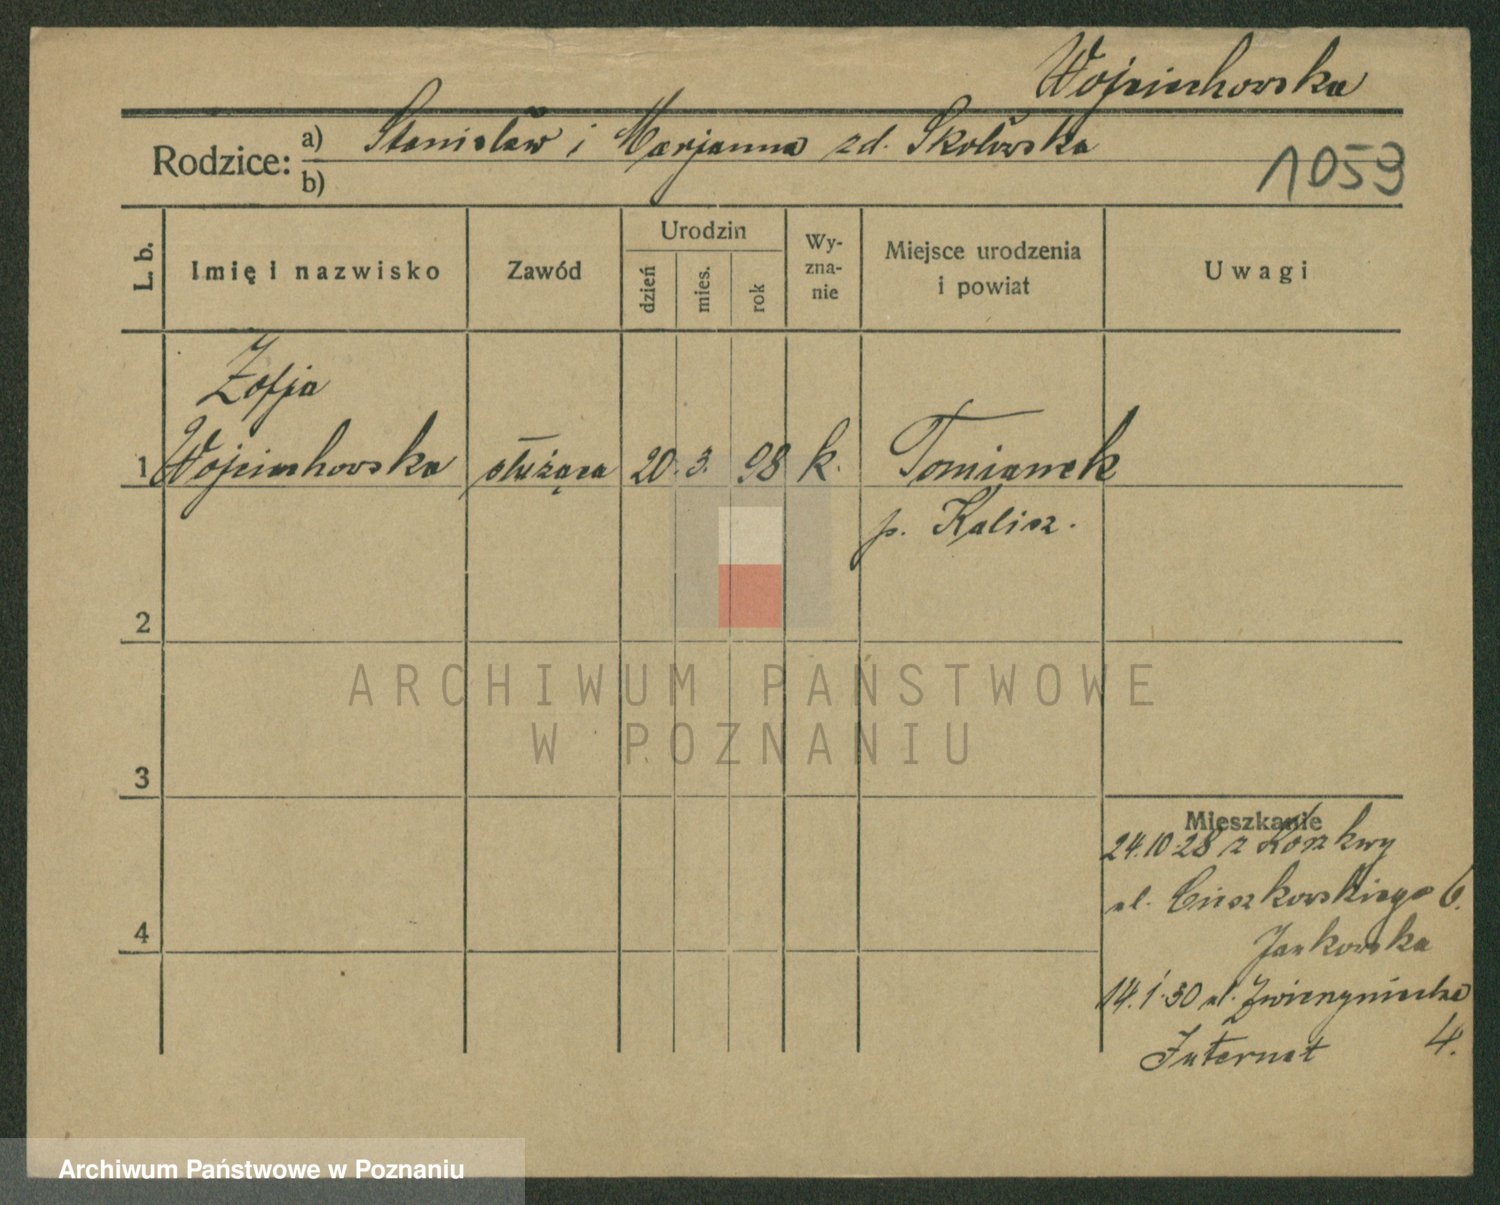 Wojciechowska
Rodzice: a) Stanisław i Marjanna zd. Skołowska
b)
1059
L. b.
Imię i nazwisko
Zawód
Urodzin
dzień
mies.
rok
Wy-
zna-
nie
Miejsce urodzenia
i powiat
Uwagi
Zofja
1 Wojciechowska służąca 20. 3. 98 k. Tomianek
p. Kalisz.
2
ARCHIWUM PAŃSTWOWE
W POZNANIU
3
Mieszkanie
24.10.28 z
ul. Cieszkowskiego 6.
Jankowska
4
14.1.30 ul. Zwierzyniecka
Internat 4.
Archiwum Państwowe w Poznaniu